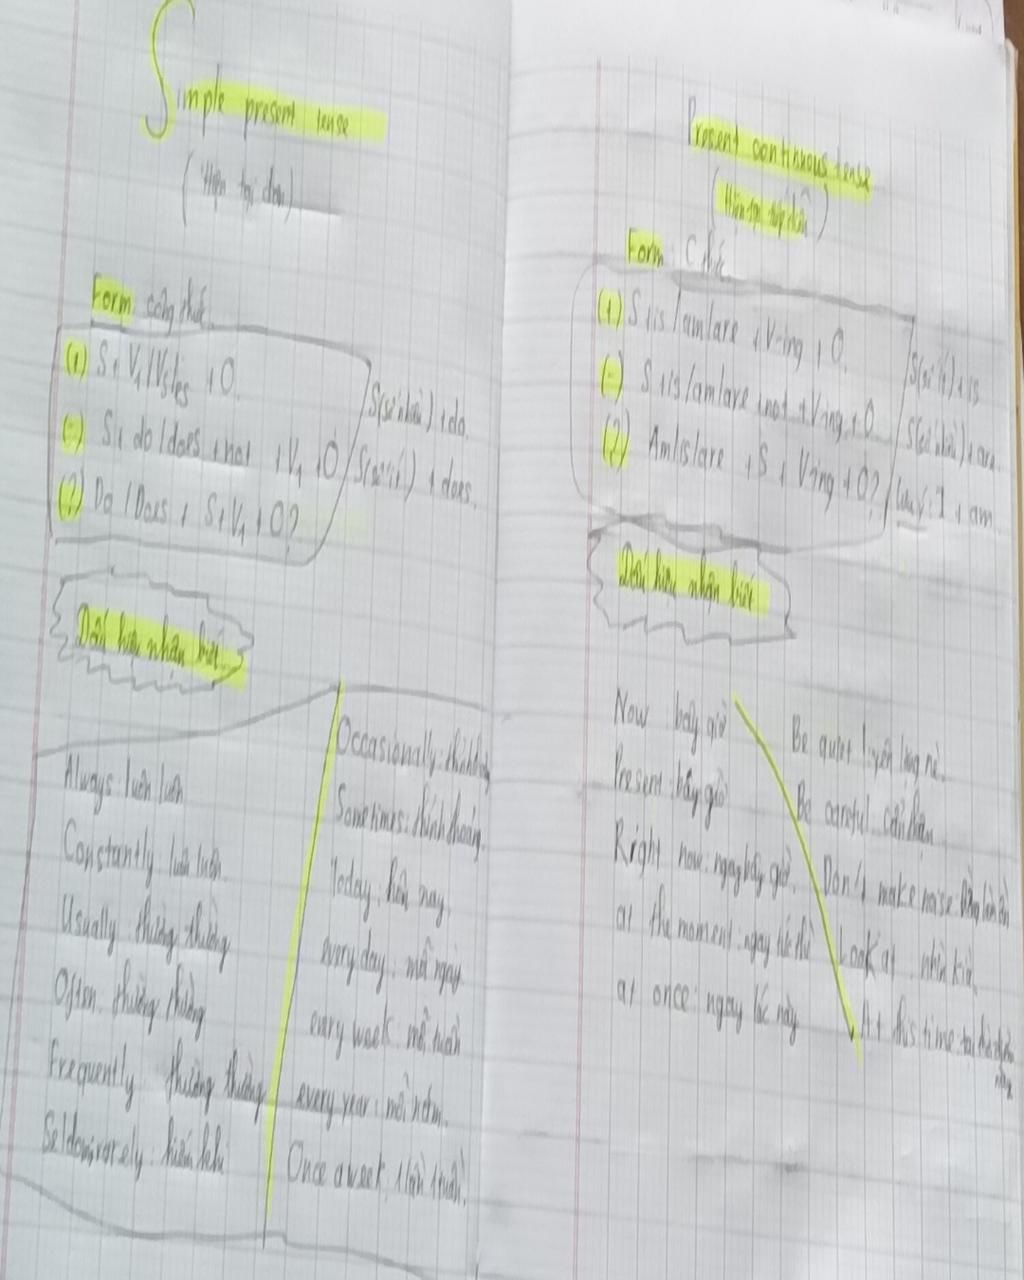 Simple present tense
(Hiện tại đơn)
Form công thức
(+) S + V1/Vs/es + O.
(-) S + do/does + not + V1 + O
(?) Do/Does + S + V1 + O?
S(số nhiều) + do.
S(số ít) + does.
Dấu hiệu nhận biết
Always: luôn luôn
Constantly: luôn luôn
Usually: thường thường
Often: thường thường
Frequently: thường thường
Seldom/rarely: hiếm khi
Occasionally:
Sometimes: thỉnh thoảng
Today: hôm nay
everyday: mỗi ngày
every week: mỗi tuần
every year: mỗi năm.
Once a week: 1 lần 1 tuần.
Present continuous tense
(Hiện tại tiếp diễn)
Form: C thức
(+) S + is/am/are + V-ing + O.
(-) S + is/am/are + not + V-ing + O
(?) Am/is/are + S + V-ing + O?
S(số ít) + is
S(số nhiều) + are
Lưu ý: I + am
Dấu hiệu nhận biết
Now: bây giờ
Present: bây giờ
Right now: ngay bây giờ
at the moment: ngay
at once: ngay lúc này
Be quiet
Be careful: cẩn thận
Don't make noise
Look at: nhìn kìa
At this time: tại thời điểm
này